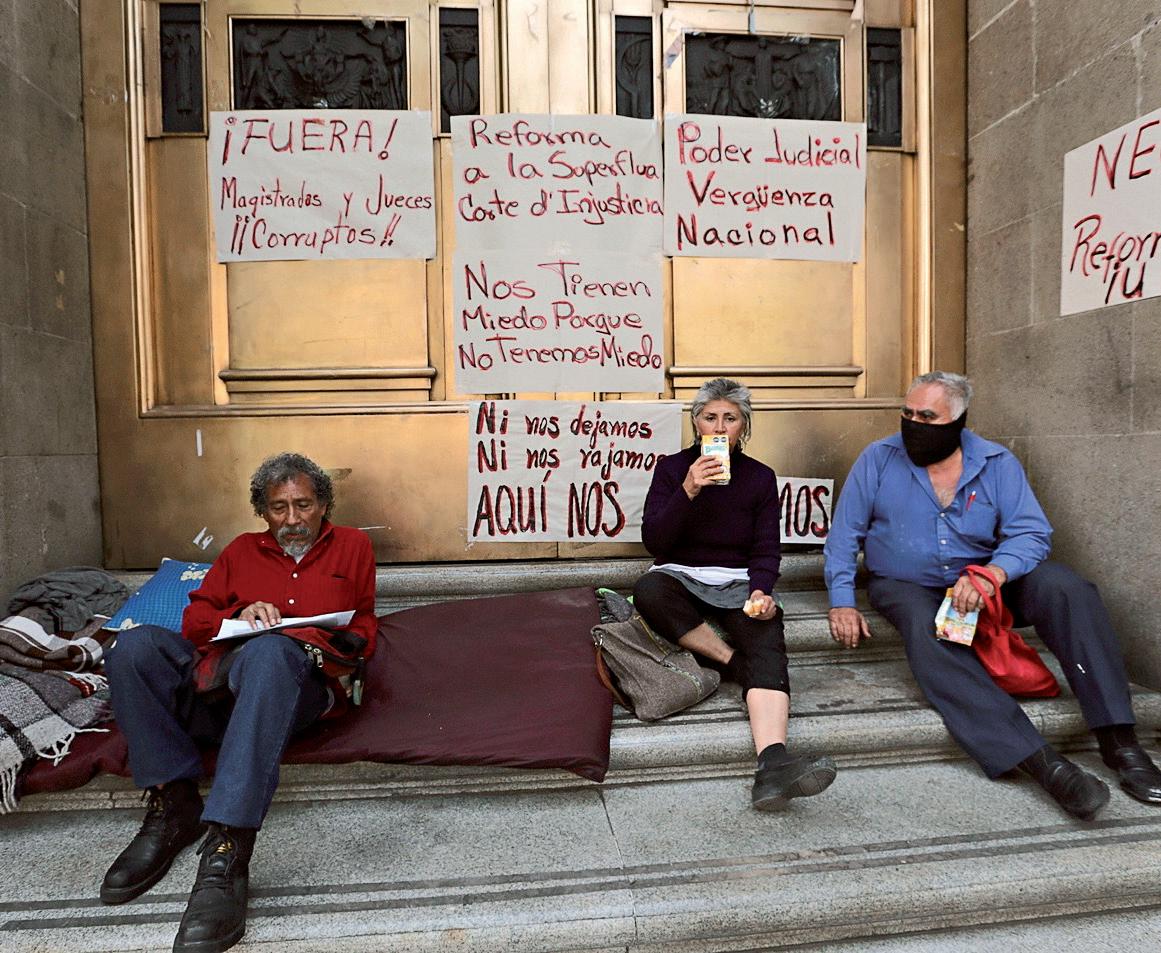 ¡FUERA!
Magistrados y Jueces
¡¡Corruptos!!
Reforma
a la Superflua
Corte d'Injusticia
Nos Tienen
Miedo Porque
No Tenemos Miedo
Poder Judicial
Vergüenza
Nacional
Ni nos dejamos
Ni nos rajamos
AQUÍ NOS
MOS
NE
Reform